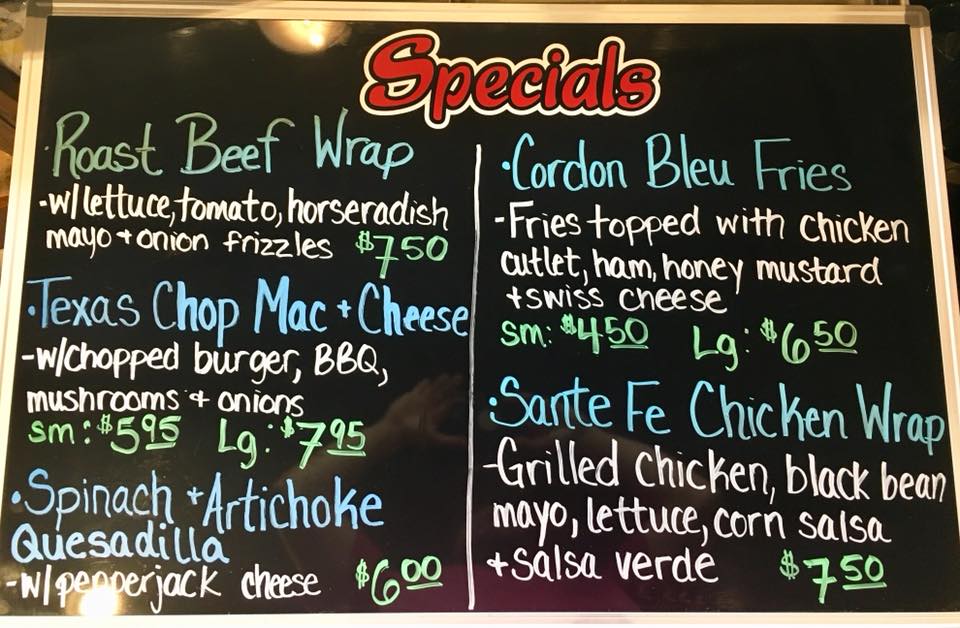 Specials
·Roast Beef Wrap
-w/lettuce, tomato, horseradish
mayo + onion frizzles $7.50
·Texas Chop Mac + Cheese
-w/chopped burger, BBQ,
mushrooms + onions
sm: $5.95 Lg: $7.95
·Spinach + Artichoke
Quesadilla
-w/pepperjack cheese $6.00
·Cordon Bleu Fries
-Fries topped with chicken
cutlet, ham, honey mustard
+ swiss cheese
sm: $4.50 Lg: $6.50
·Sante Fe Chicken Wrap
-Grilled chicken, black bean
mayo, lettuce, corn salsa
+ salsa verde $7.50